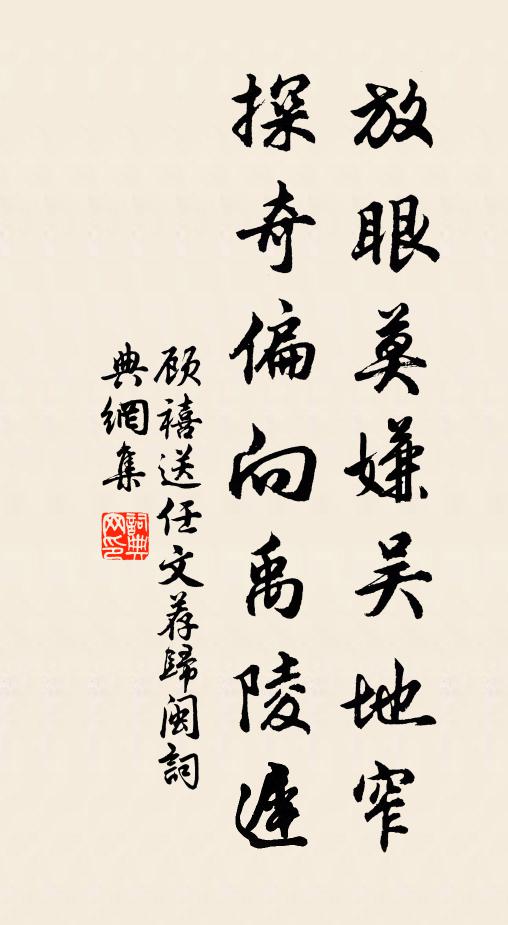 放眼莫嫌吴地窄
探奇偏向禹陵遲
顾禧送任文荐歸闽詞
典網集
詞典网印